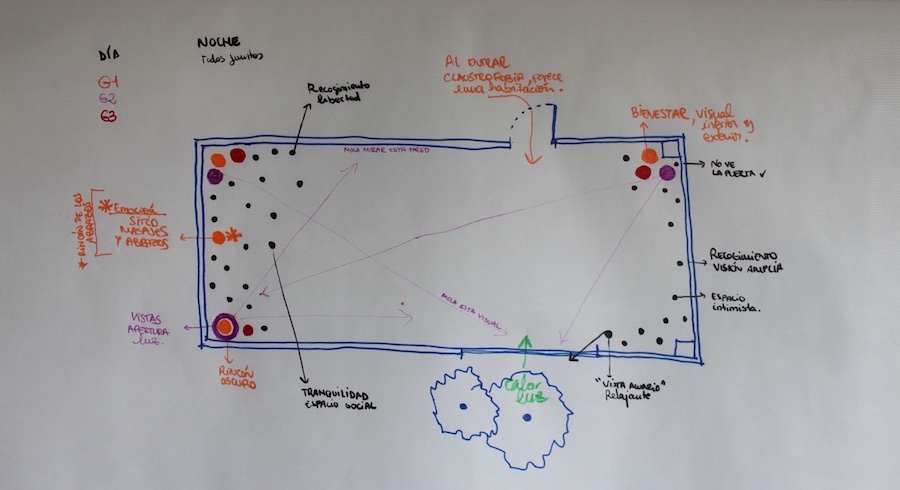 DÍA
G1
G2
G3
NOCHE
Todos juntitos
Recogimiento
libertad
AL ENTRAR
CLAUSTROFOBIA, PARECE
una habitación.
BIENESTAR, VISUAL
interior y
exterior.
MOLA MIRAR ESTA PARED
NO VE
LA PUERTA ✓
* RINCÓN DE LOS
ABRAZOS
* EMOCIÓN
SITIO
MASAJES
Y ABRAZOS
RECOGIMIENTO
VISIÓN AMPLIA
ESPACIO
intimista.
MOLA ESTA VISUAL
VISTAS
APERTURA
luz.
RINCÓN
OSCURO
TRANQUILIDAD
ESPACIO SOCIAL
Calor
luz
"VISTA ACUARIO"
Relajante